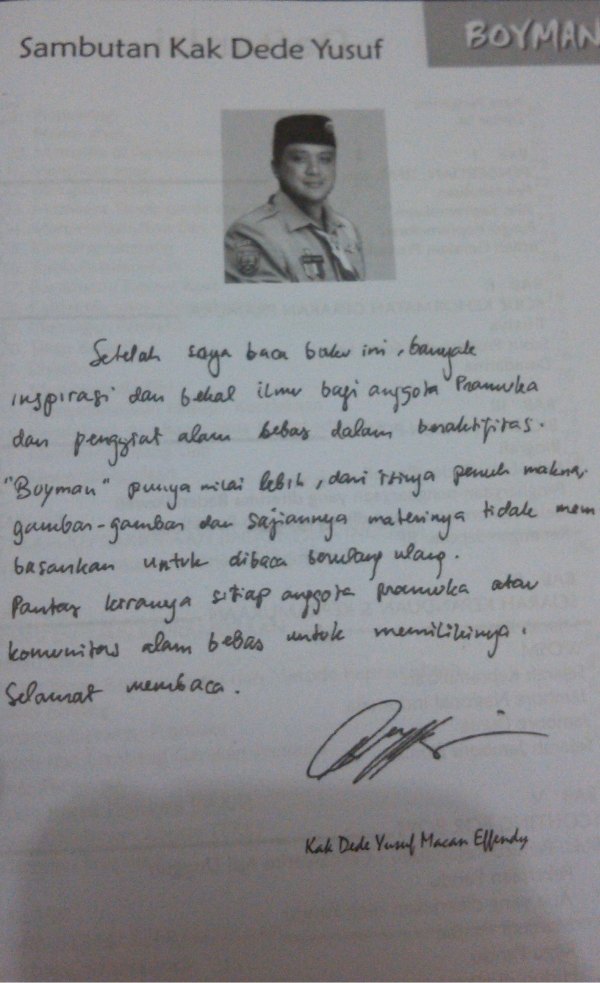 BOYMAN
Sambutan Kak Dede Yusuf
Setelah saya baca buku ini, banyak
inspirasi dan bekal ilmu bagi anggota Pramuka
dan penggiat alam bebas dalam beraktifitas.
"Boyman" punya nilai lebih, dari isinya penuh makna,
gambar-gambar dan sajiannya materinya tidak mem
bosankan untuk dibaca berulang ulang.
Pantas kiranya setiap anggota pramuka atau
komunitas alam bebas untuk memilikinya.
Selamat membaca.
Kak Dede Yusuf Macan Effendy